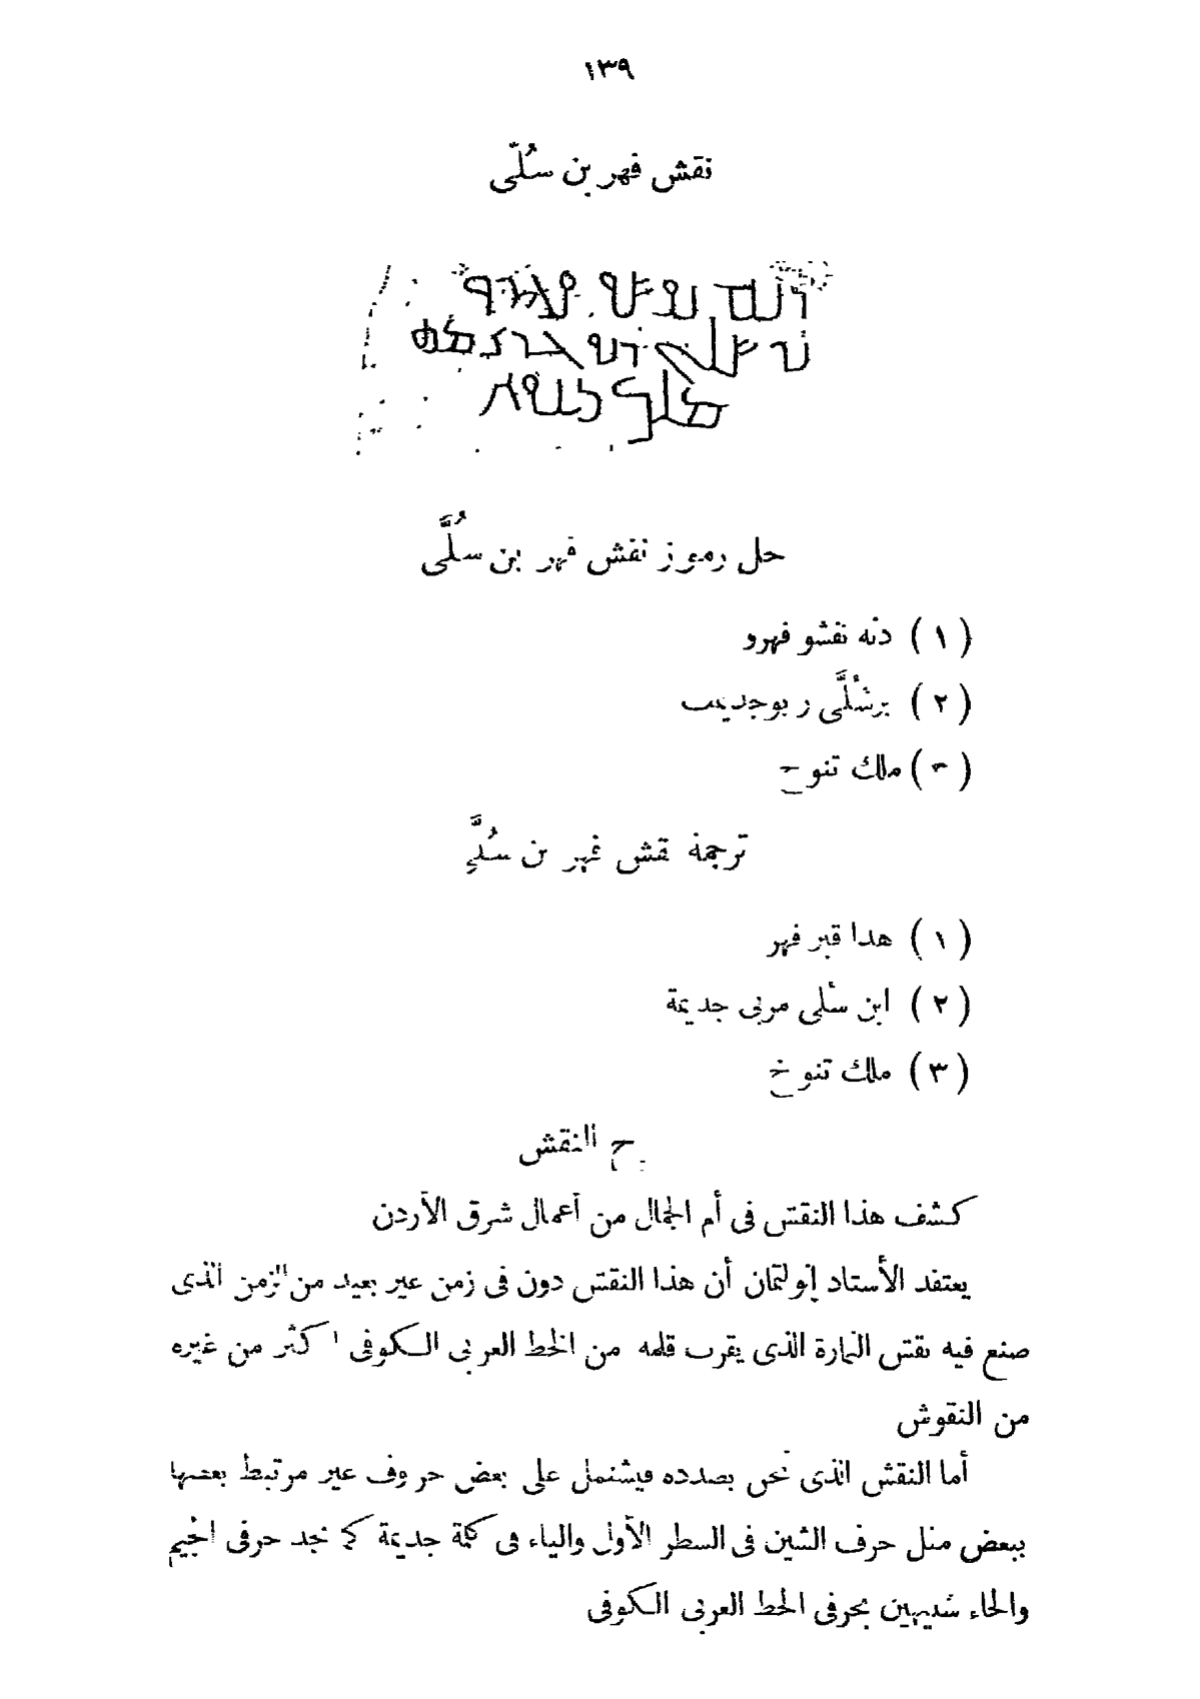 ١٣٩
نقش فهر بن سُلّى
حل رموز نقش فهر بن سُلَّى
( ١ ) دنه نفشو فهرو
( ٢ ) برشُلَّى ربو جديمت
( ٣ ) ملك تنوح
ترجمة نقش فهر بن سُلَّى
( ١ ) هذا قبر فهر
( ٢ ) ابن سُلى مربى جديمة
( ٣ ) ملك تنوخ
النقش
كشف هذا النقش فى أم الجمال من أعمال شرق الأردن
يعتقد الأستاذ إنولتمان أن هذا النقش دون فى زمن غير بعيد من الزمن الذى
صنع فيه نقش النمارة الذى يقرب قلمه من الخط العربى الكوفى أكثر من غيره
من النقوش
أما النقش الذى نحن بصدده فيشتمل على بعض حروف غير مرتبط بعضها
ببعض مثل حرف الشين فى السطر الأول والياء فى كلمة جديمة كما نجد حرفى الجيم
والحاء شبيهين بحرفى الخط العربى الكوفى